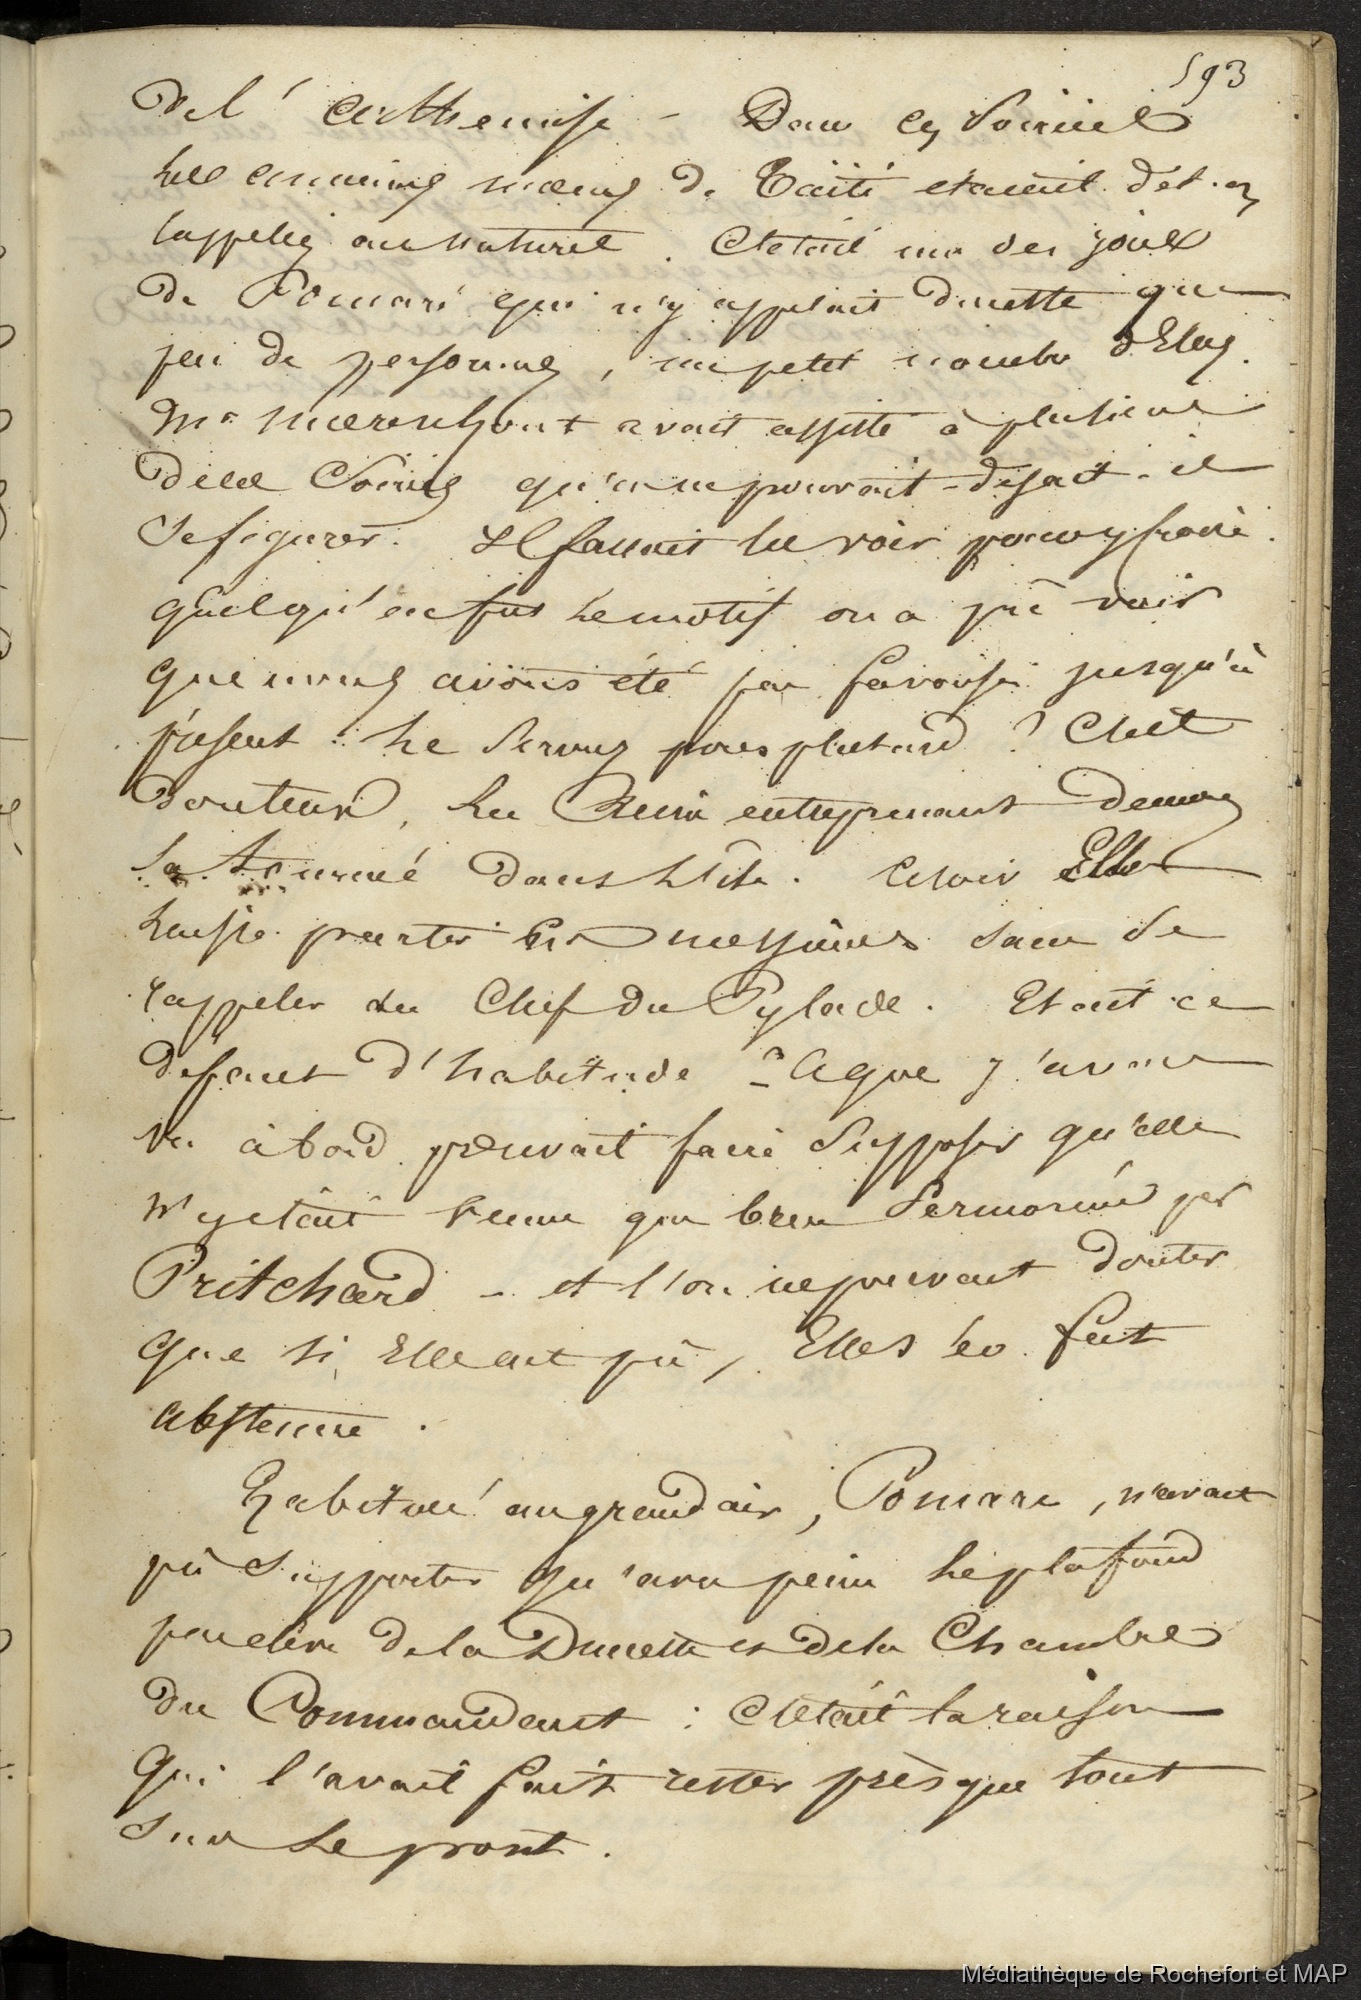 593
de l'Arthemise - Dans ces soirées
les anciennes moeurs de Taïti etaient dit-on
rappelées au naturel. C'etait un des joies
de Pomaré qui n'y appelait d'nette que
peu de personnes, un petit nombre d'Elus.
Mr Moerenhout avait assisté à plusieurs
de ces Soirées qu'on ne pouvait - disait-il
se figurer. Il fallait les voir pour y croire.
Quelqu'en fut le motif on a pû voir
que nous avons été peu favorisés jusqu'à
présent. Le serons nous plutard ? C'est
douteux. La Reine entreprenant
sa tournée dans l'isle. Avoir Elle
laissa partir les messieurs sans se
rappeler du Chef du Pylade. Etait-ce
defaut d'habitude ? - Ce que j'avais
vu à bord pouvait faire supposer qu'elle
n'y etait venue que bien sermonnée par
Pritchard - et l'on ne pouvait douter
que si Elle eut pû, Elle s'en fut
abstenue.
Habituée au grand air, Pomare, n'avait
pû supporter qu'avec peine le plafond
peu elevé de la Dunette et de la Chambre
du Commandant : C'etait la raison
Qui l'avait fait rester près que tout
sur le pont.
Médiathèque de Rochefort et MAP